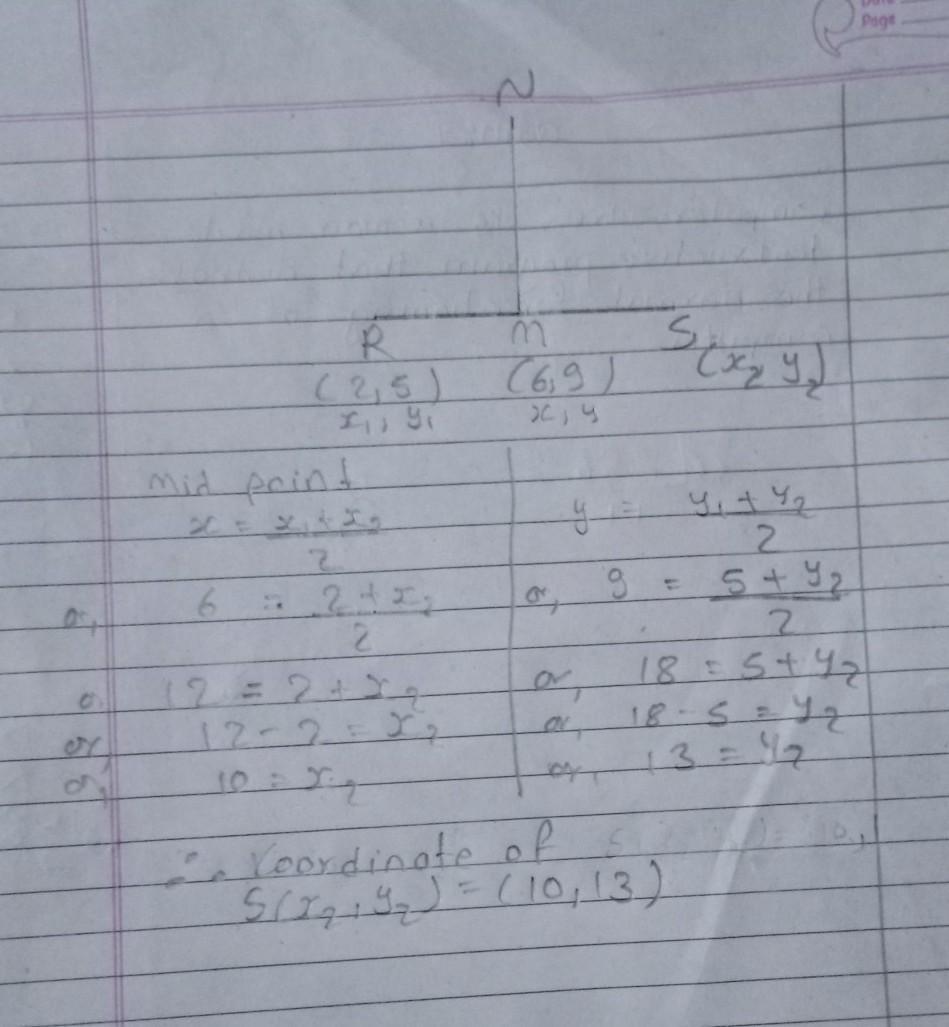 Page
N
R M S
(2,5) (6,9) (x₂ y₂)
x₁, y₁ x, y
Mid point
x = x₁+x₂ / 2
or, 6 = 2+x₂ / 2
or, 12 = 2+x₂
or, 12-2 = x₂
or, 10 = x₂
y = y₁+y₂ / 2
or, 9 = 5+y₂ / 2
or, 18 = 5+y₂
or, 18-5 = y₂
or, 13 = y₂
∴ Coordinate of
S(x₂,y₂) = (10,13)